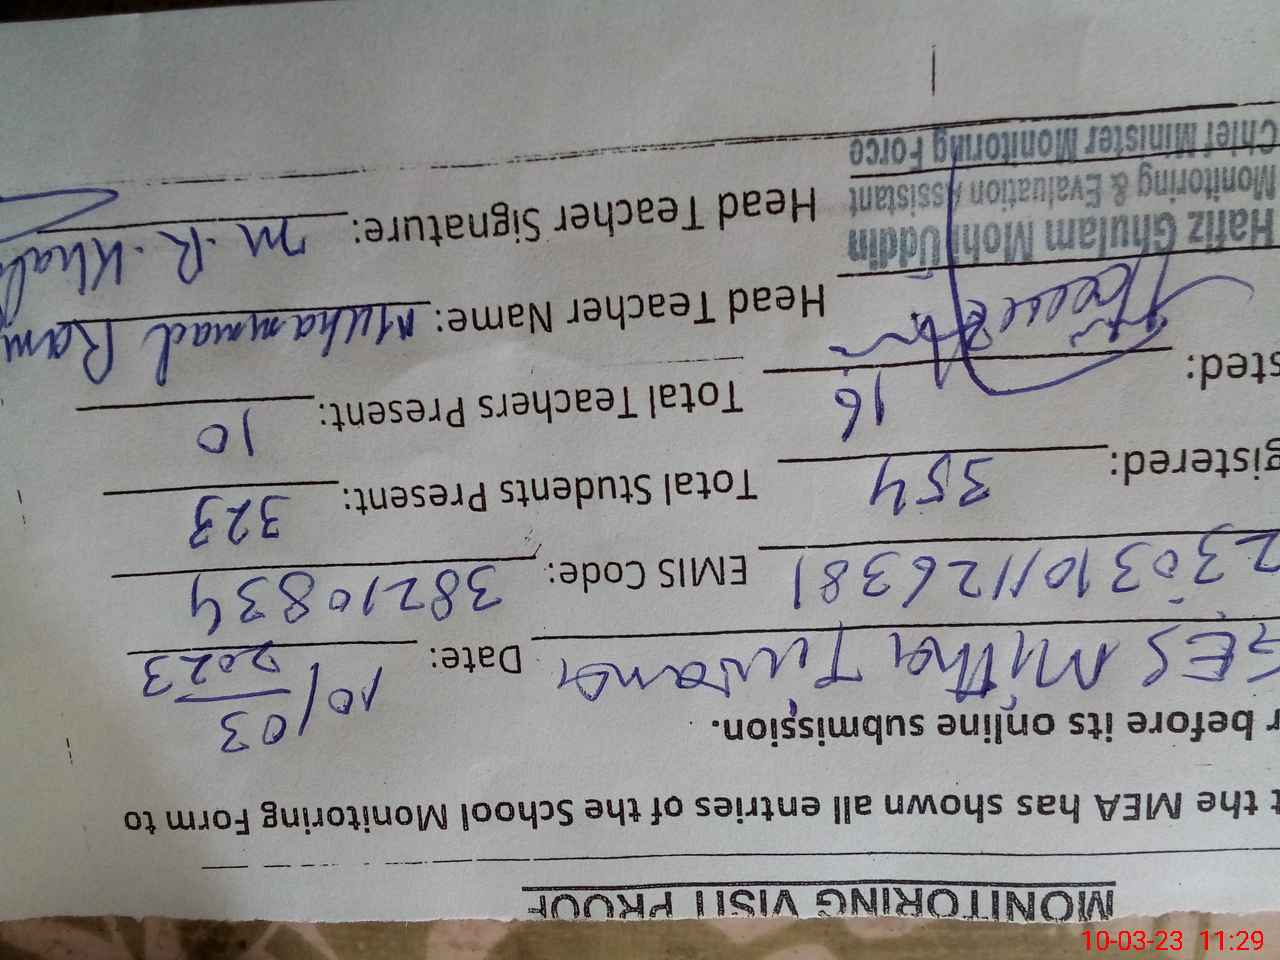 MONITORING VISIT PROOF
the MEA has shown all entries of the School Monitoring Form to
before its online submission.
GES Mitha Tiwana Date: 10/03/2023
230310/126381 EMIS Code: 38210834
gistered: 354 Total Students Present: 323
sted: 16 Total Teachers Present: 10
Head Teacher Name: Muhammad Ram
Hafiz Ghulam Mohi Uddin
Monitoring & Evaluation Assistant
Chief Minister Monitoring Force
Head Teacher Signature: M.R.Khal
10-03-23 11:29